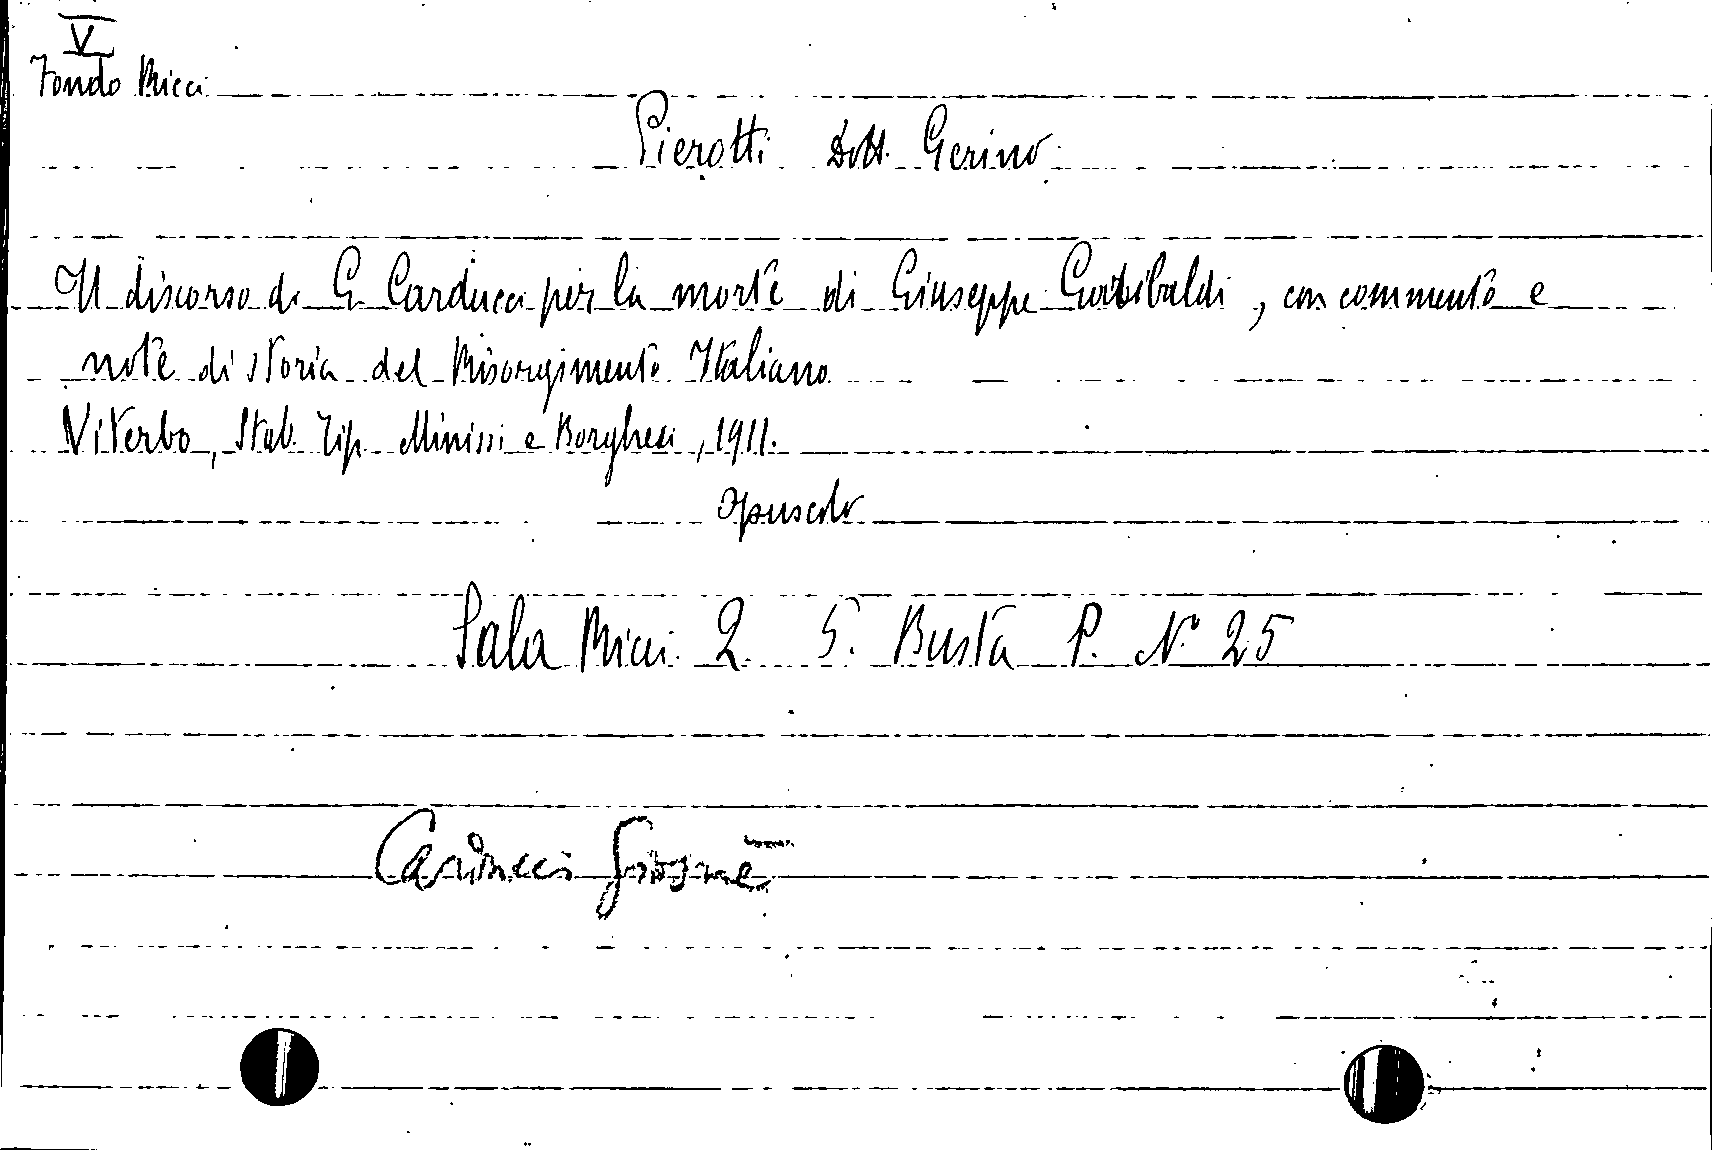 V
Fondo Ricci
Pierotti Dott. Gerino
Il discorso di G. Carducci per la morte di Giuseppe Garibaldi, con commento e
note di storia del Risorgimento Italiano
Viterbo, Stab. Tip. Minissi e Borghesi, 1911.
opuscolo
Sala Ricci 2 5. Busta P. N° 25
Carducci Giosuè